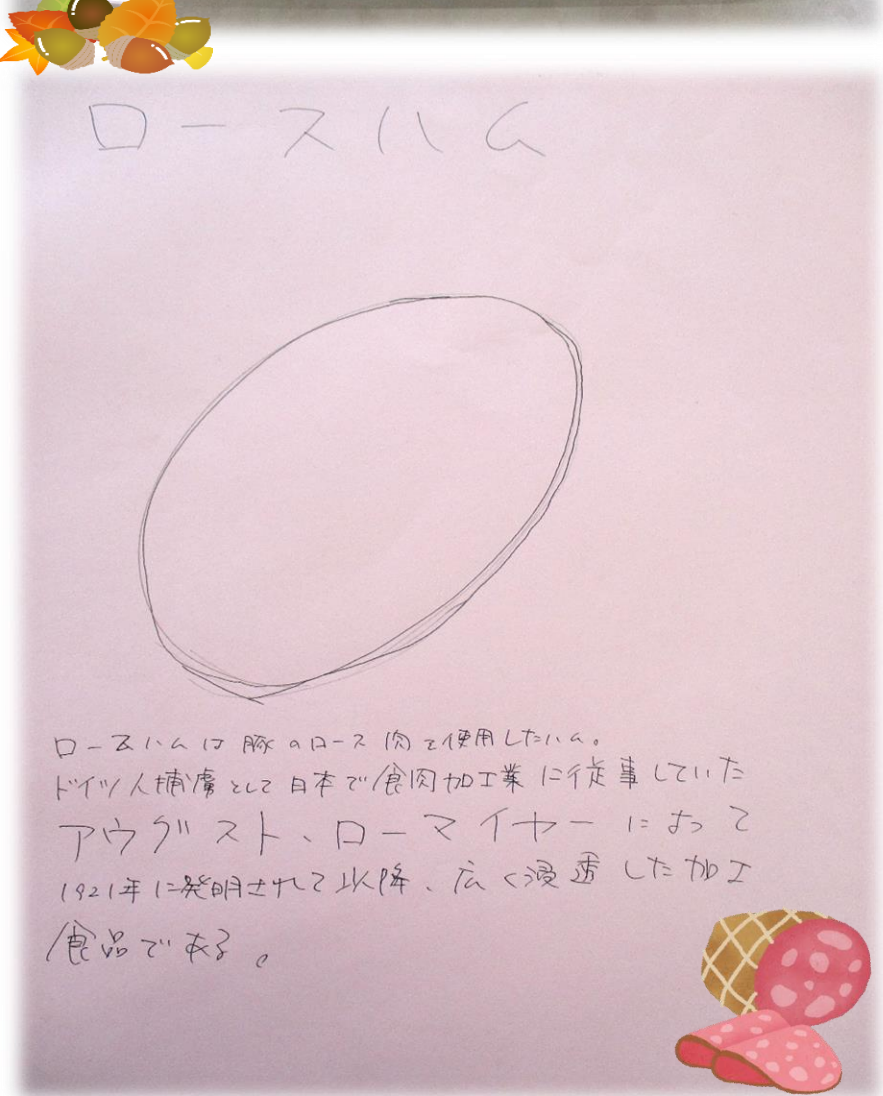 ロースハム
ロースハムは豚のロース肉を使用したハム。
ドイツ人捕虜として日本で食肉加工業に従事していた
アウグスト、ローマイヤーによって
1921年に発明されて以降、広く浸透した加工
食品である。